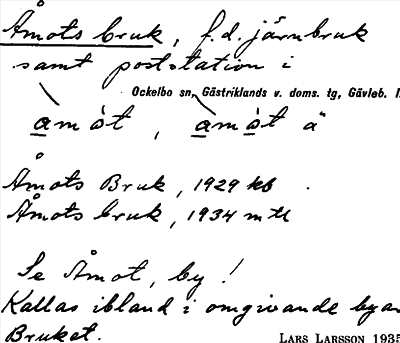 Åmots bruk, f.d. järnbruk
samt poststation i
Ockelbo sn, Gästriklands v. doms. tg, Gävleb. l.
amòt, amòt ä
Åmots Bruk, 1929 kb.
Åmots bruk, 1934 mtl
Se Åmot, by!
Kallas ibland i omgivande byar
Bruket.
LARS LARSSON 1935